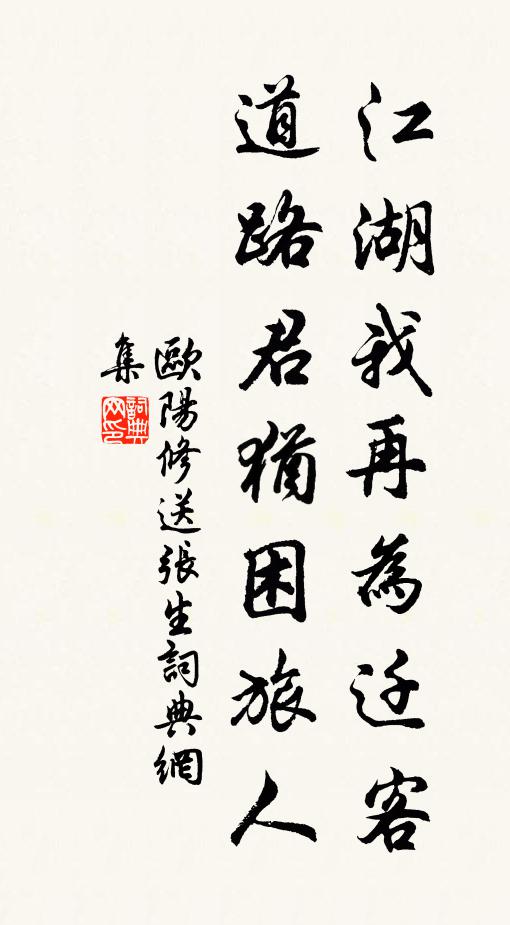 江湖我再為迁客
道路君猶困旅人
歐陽修送張生詞典網
集
詞典网印